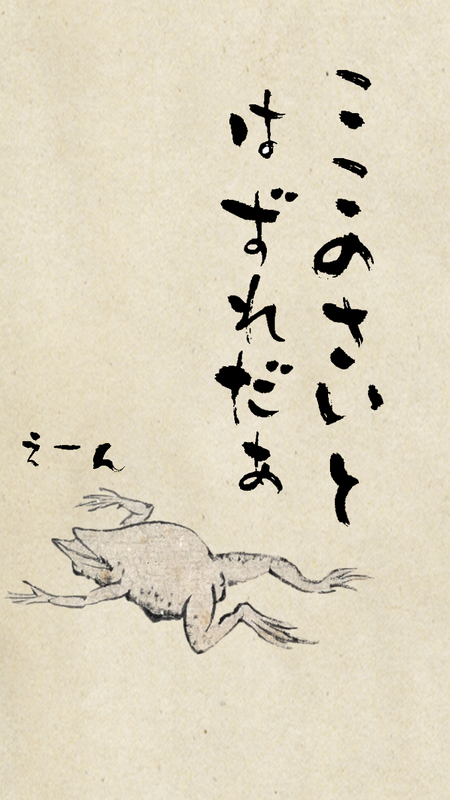 ここのさいと
はずれだぁ
えーん